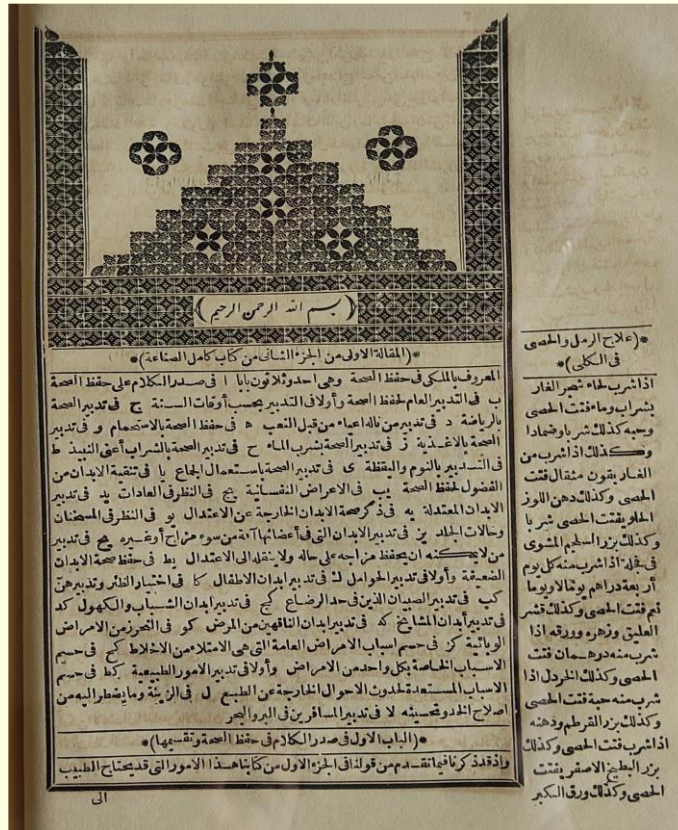 (بسم الله الرحمن الرحيم)
*(المقالة الاولى من الجزء الثانى من كتاب كامل الصناعة)*
المعروف بالملكى فى حفظ الصحة وهى احدوثلاثون بابا ا فى صدر الكلام على حفظ الصحة
ب فى التدبير العام لحفظ الصحة وأولا فى التدبير بحسب أوقات السنة ج فى تدبير الصحة
بالرياضة د فى تدبير من ناله اعياء من قبل التعب ه فى حفظ الصحة بالاستحمام و فى تدبير
الصحة بالاغذية ز فى تدبير الصحة بشرب الماء ح فى تدبير الصحة بالشراب أعنى النبيذ ط
فى التدبير بالنوم واليقظة ى فى تدبير الصحة باستعمال الجماع يا فى تنقية الابدان من
الفضول لحفظ الصحة يب فى الاعراض النفسانية يج فى النظر فى العادات يد فى تدبير
الابدان المعتدلة يه فى ذكر صحة الابدان الخارجة عن الاعتدال يو فى النظر فى السحنات
وحالات الجلد يز فى تدبير الابدان التى فى أعضائها آفة من سوء مزاج أوغيره يح فى تدبير
من لايمكنه ان يحفظ مزاجه على حاله ولا ينقله الى الاعتدال يط فى حفظ صحة الابدان
الضعيفة وأولا فى تدبير الحوامل ك فى تدبير ابدان الاطفال كا فى اختيار الظئر وتدبيرهن
كب فى تدبير الصبيان الذين فى حد الرضاع كج فى تدبير ابدان الشباب والكهول كد
فى تدبير أبدان المشايخ كه فى تدبير ابدان الناقهين من المرض كو فى التحرز من الامراض
الوبائية كز فى حسم اسباب الامراض العامة التى هى الامتلاء من الاخلاط كح فى حسم
الاسباب الخاصة بكل واحد من الامراض وأولا فى تدبير الامور الطبيعية كط فى حسم
الاسباب المستعدة لحدوث الاحوال الخارجة عن الطبع ل فى الزينة وما يضطر اليه من
اصلاح الخد وتحسينه لا فى تدبير المسافرين فى البر والبحر
*(الباب الاول فى صدر الكلام فى حفظ الصحة وتقسيمها)*
واذقد ذكرنا فيما تقدم من قولنا فى الجزء الاول من كتابنا هذا الامور التى قد يحتاج الطبيب
الى
*(علاج الرمل والحصى
فى الكلى)*
اذا شرب لحاء شجر الغار
بشراب وماء فتت الحصى
وحبه كذلك شربا وضمادا
وكذلك اذا شرب من
الغاريقون مثقال فتت
الحصى وكذلك دهن اللوز
الحلو يفتت الحصى شربا
وكذلك بزر السلجم المشوى
فى فجلة اذا شرب منه كل يوم
أربعة دراهم يوما لا ويوما
نعم فتت الحصى وكذلك قشر
العليق وزهره وورقه اذا
شرب منه درهمان فتت
الحصى وكذلك الخردل اذا
شرب منه حبة فتت الحصى
وكذلك بزر القرطم ودهنه
اذا شرب فتت الحصى وكذلك
بزر البطيخ الاصفر يفتت
الحصى وكذلك ورق الكبر